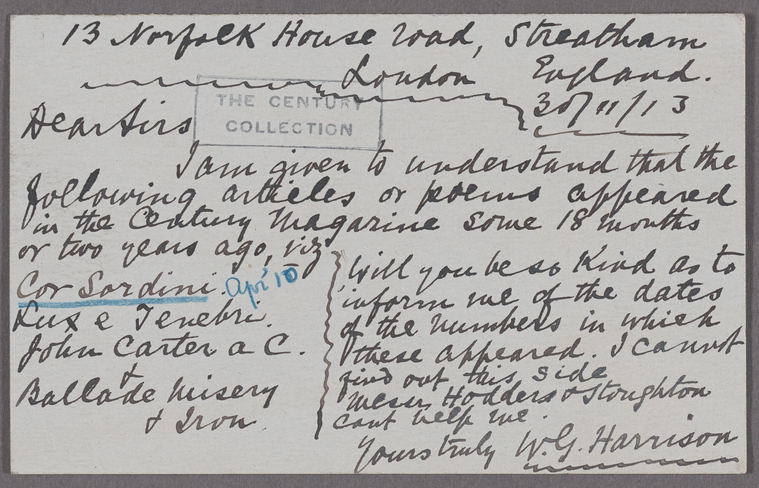 13 Norfolk House road, Streatham
London England.
30/11/13
THE CENTURY
COLLECTION
Dear Sirs
I am given to understand that the
following articles or poems appeared
in the Century Magazine some 18 months
or two years ago, viz
Cor Sordini. Apr '10
Lux e Tenebri.
John Carter a C.
+
Ballade Misery
& Iron.
Will you be so kind as to
inform me of the dates
of the numbers in which
these appeared. I cannot
find out this side
Messr Hodders & Stoughton
cant help me.
Yours truly W. G. Harrison